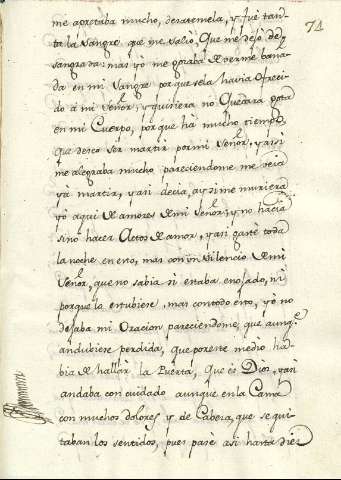 74
me apretaba mucho, desatemela, y fue tan-
ta la sangre que me salió, que me dejó de-
sangrada: mas yo me gozaba de verme baña-
da en mi sangre porque sela havia ofreci-
do à mi Señor, y quisiera no quedara gota
en mi Cuerpo, porque ha mucho tiempo,
que deseo ser martir por mi Señor, y asi
me alegraba mucho, pareciendome me veia
yà martir, y asi decia, ay si me muriera
yò aqui de amores de mi Señor, y no hacia
sino hacer Actos de amor, y asi gasté toda
la noche en esto, mas con un silencio de mi
Señor, que no sabia si estaba enojado, ni
porque lo estubiese, mas con todo esto, yò no
dejaba mi Oracion pareciendome, que aunq.e
andubiese perdida, que por este medio ha-
bia de hallar la Puerta, que es Dios, y asi
andaba con cuidado aunque en la Cama
con muchos dolores y de Cabeza, que se qui-
taban los sentidos, pues pasè asi hasta diez